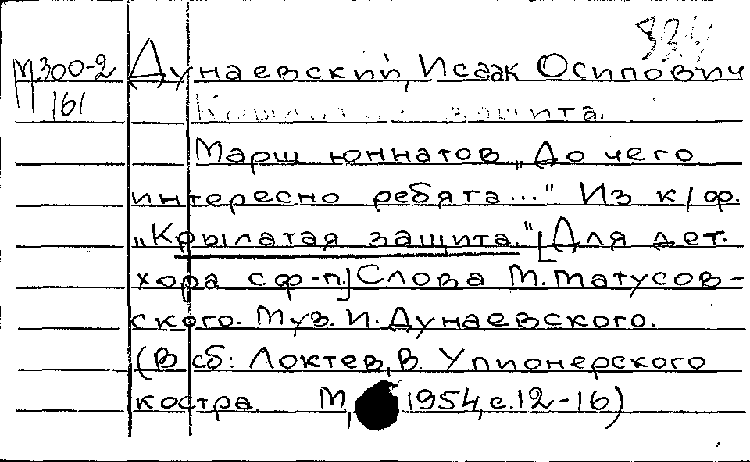 334
М300-2 Дунаевский, Исаак Осипович
161 Крылатая защита.
Марш юннатов „До чего
интересно ребята..." Из к/ф.
„Крылатая защита." [Для дет.
хора с ф-п.] Слова М. Матусов-
ского. Муз. И. Дунаевского.
(В сб: Локтев, В. У пионерского
костра. М, 1954, с. 12-16)